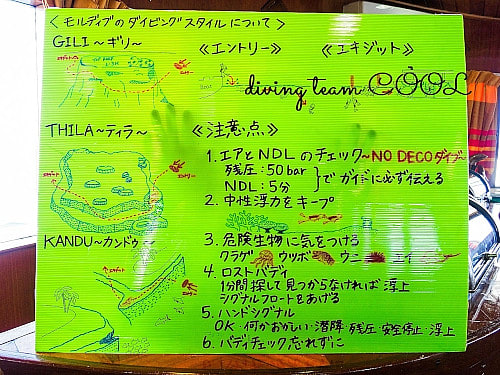 <モルディブのダイビングスタイルについて>
GILI～ギリ～
≪エントリー≫ ≪エキジット≫
diving team COOL
THILA～ティラ～
≪注意点≫
1. エアとNDLのチェック～NO DECOダイブ～
残圧：50bar
NDL：5分
}でガイドに必ず伝える
2. 中性浮力をキープ
KANDU～カンドゥ～
3. 危険生物に気をつける
クラゲ ウツボ ウニ エイ
4. ロストバディ
1分間探して見つからなければ浮上
シグナルフロートをあげる
5. ハンドシグナル
OK 何かおかしい・潜降・残圧・安全停止・浮上
6. バディチェック忘れずに